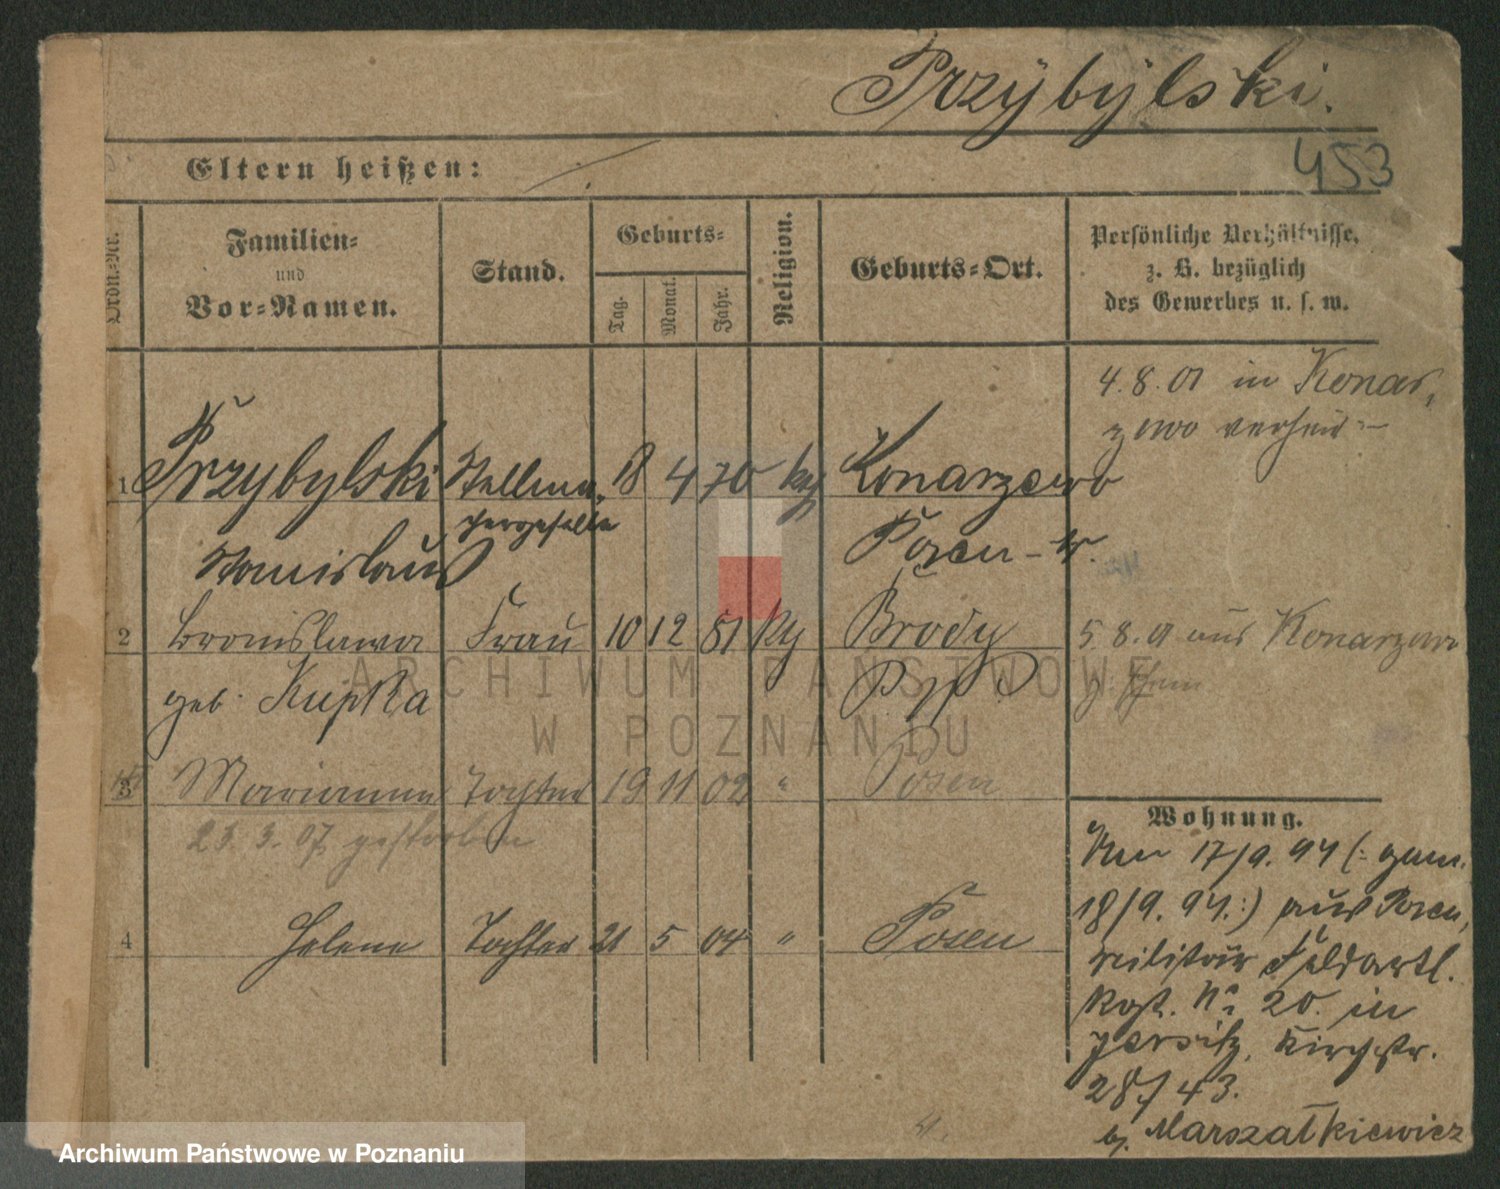 Przybylski.
453
Eltern heißen:
Ordn.-Nr.
Familien-
und
Vor-Namen.
Stand.
Geburts-
Tag.
Monat.
Jahr.
Religion.
Geburts-Ort.
Persönliche Verhältnisse,
z. B. bezüglich
des Gewerbes u. s. w.
4.8.01 in Konar-
zewo verheir.
1 Przybylski Stellma- 18 4 70 Konarzewo
chergeselle
Stanislaus Posen-W.
2 Bronislawa Frau 10 12 81 Brody
5.8.01 aus Konarzewo
geb. Kupka
3 Marianna Tochter 19 11 02 " Posen
25.3.07 gestorben
4 Helene Tochter 21 5 04 " Posen
Wohnung.
17/9.94 (: gem.
18/9.94.:) aus Posen,
Militär Feldartl.
Rgt. No 20. in
Jersitz, Kirchstr.
28/43.
b. Marszałkiewicz
ARCHIWUM PAŃSTWOWE
W POZNANIU
Archiwum Państwowe w Poznaniu